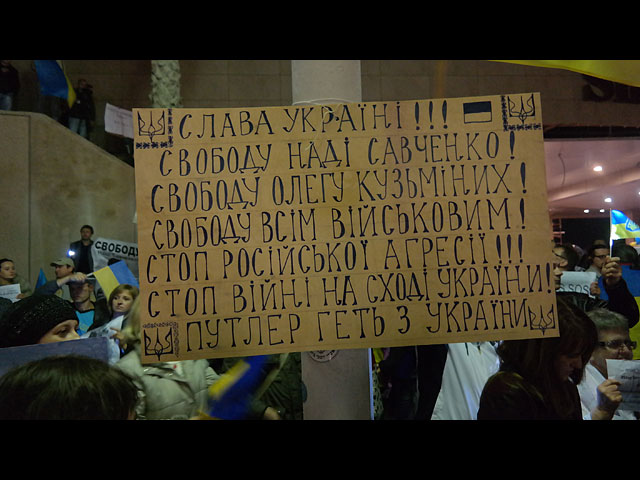 СЛАВА УКРАЇНІ!!!
СВОБОДУ НАДІ САВЧЕНКО!
СВОБОДУ ОЛЕГУ КУЗЬМІНИХ!
СВОБОДУ ВСІМ ВІЙСЬКОВИМ!
СТОП РОСІЙСЬКОЇ АГРЕСІЇ!!!
СТОП ВІЙНІ НА СХОДІ УКРАЇНИ!
ПУТЛЕР ГЕТЬ З УКРАЇНИ
СВОБОДУ
SOS